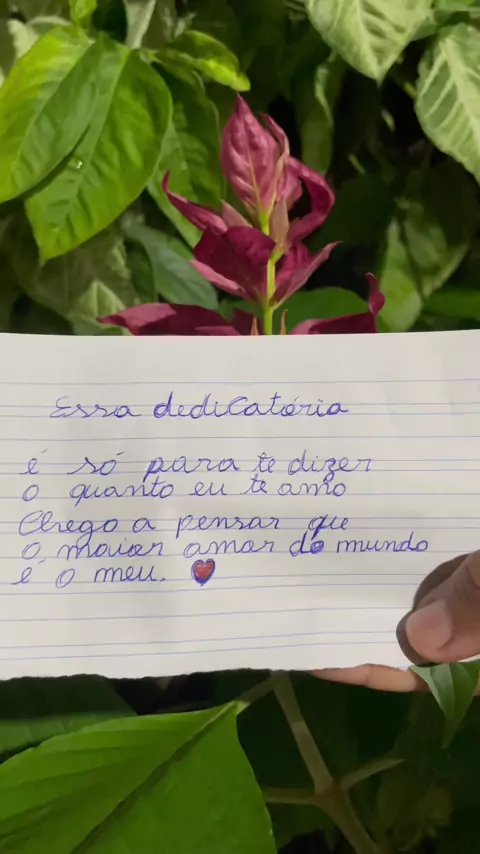 Essa dedicatória
é só para te dizer
o quanto eu te amo
Chego a pensar que
o maior amor do mundo
é o meu. ❤